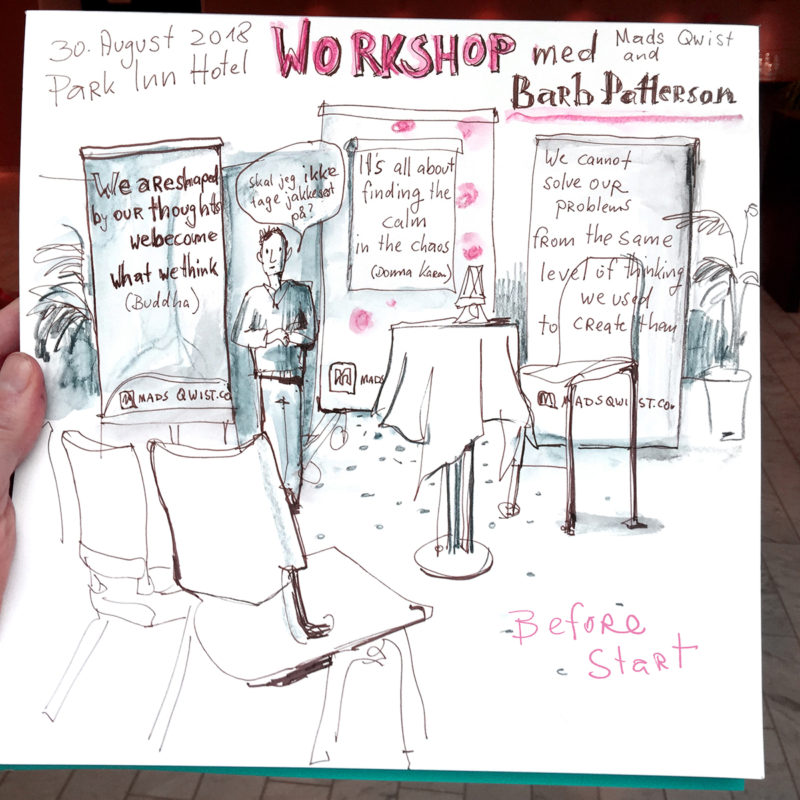 30. August 2018
Park Inn Hotel
WORKSHOP med
Mads Qwist
and
Barb Patterson
We are shaped
by our thoughts
we become
what we think
(Buddha)
MADS QWIST.CO
Skal jeg ikke
tage jakkesæt
på?
It's all about
finding the
calm
in the chaos
(Donna Karan)
MADS
We cannot
solve our
problems
from the same
level of thinking
we used
to create them
MADSQWIST.CO
Before
Start